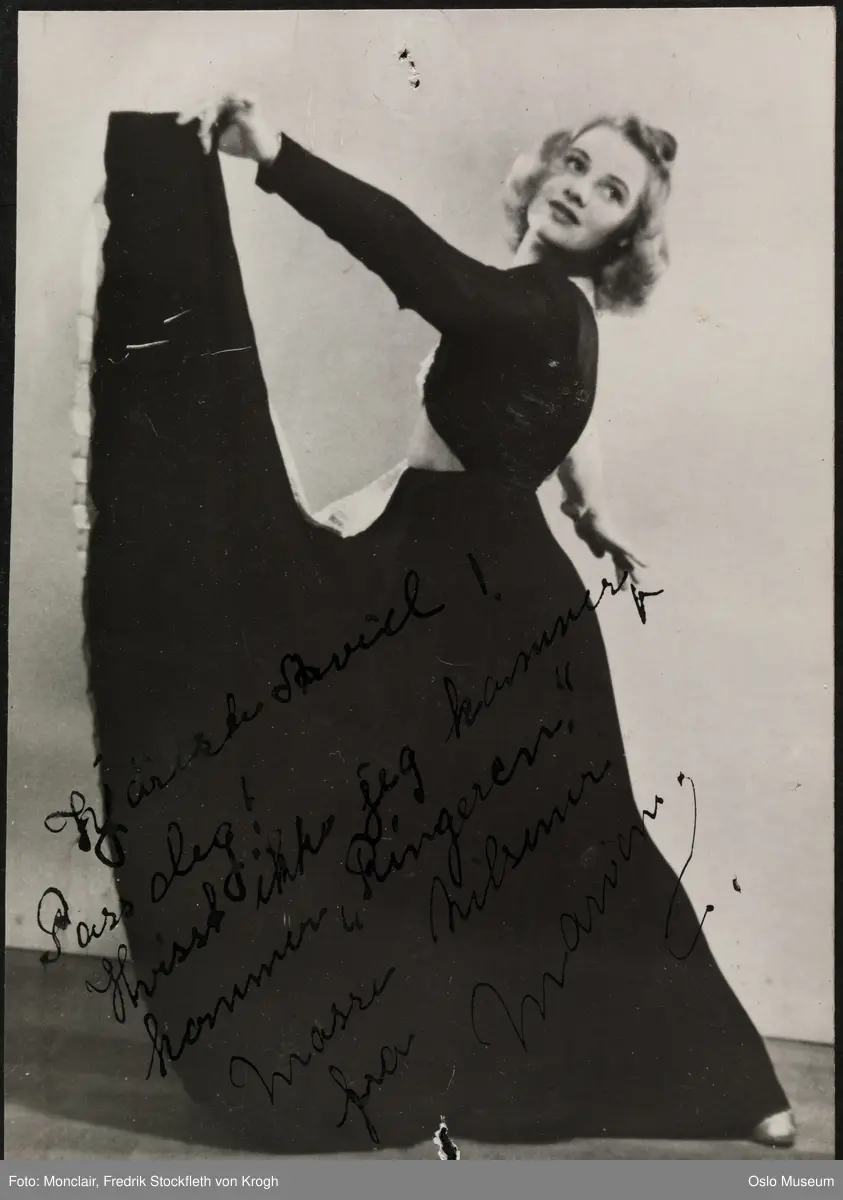 Kjæreste Arvid!
Pass deg!
Hvisst ikke jeg kommer,
kommer „Ringeren“
Masse hilsener
fra Marion.
Foto: Monclair, Fredrik Stockfleth von Krogh
Oslo Museum